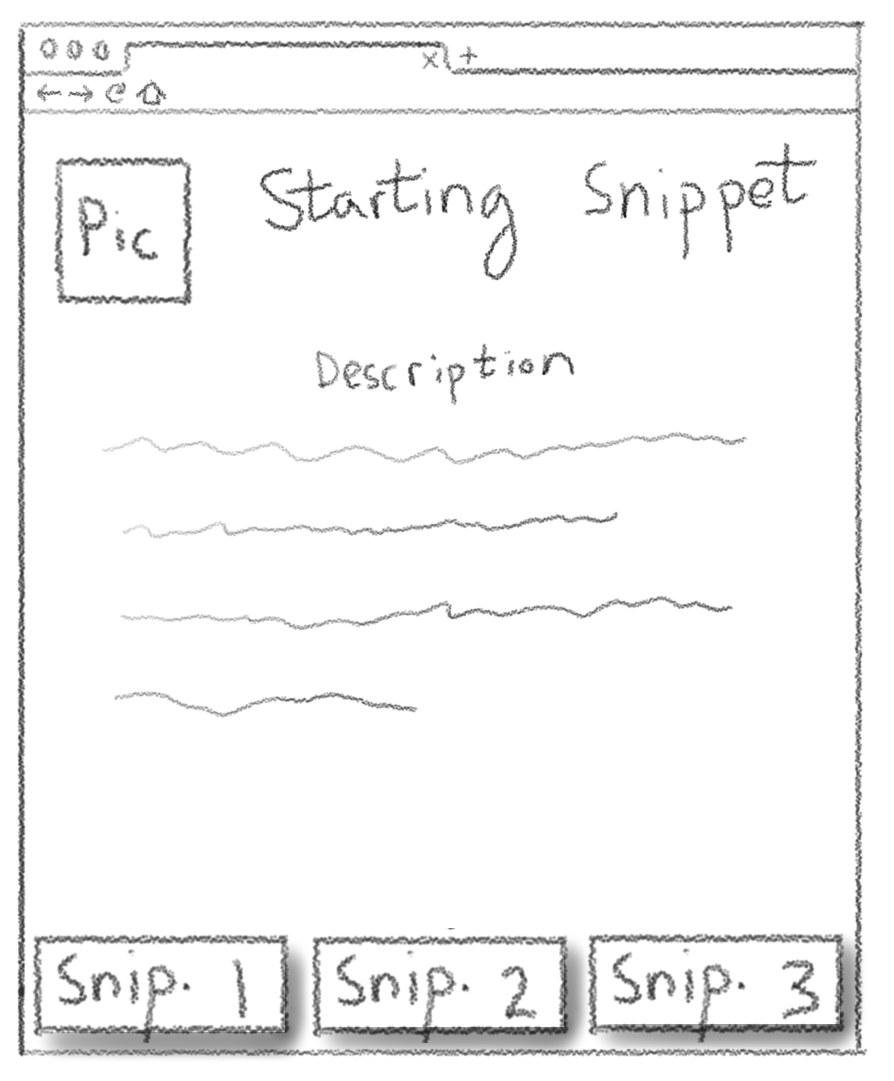 x +
Pic
Starting Snippet
Description
Snip. 1
Snip. 2
Snip. 3